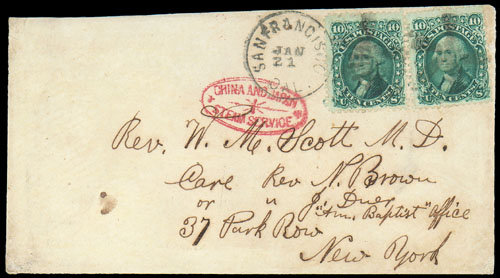 10 U.S. POSTAGE 10
TEN CENTS
10 U.S. POSTAGE 10
TEN CENTS
SAN FRANCISCO
JAN
21
CAL.
CHINA AND JAPAN
STEAM SERVICE
Rev. W. M. Scott M. D.
Care Rev N. Brown
or " J. Duer
"Am. Baptist" Office
37 Park Row
New York